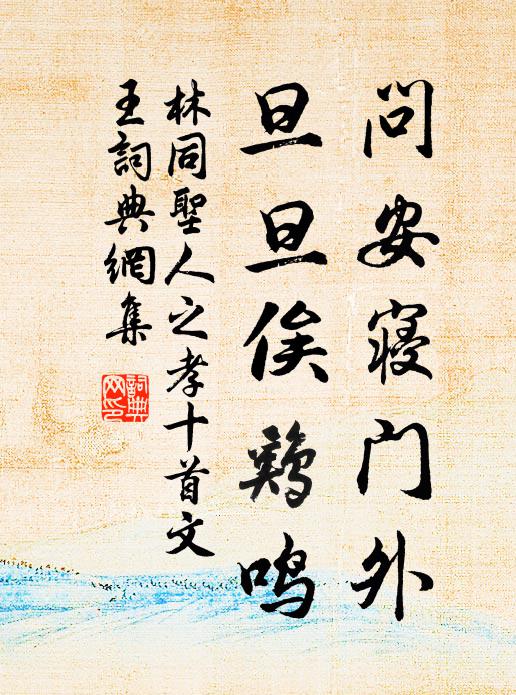 问安寝门外
旦旦俟鷄鸣
林同聖人之孝十首文
王詞典網集
詞典网印